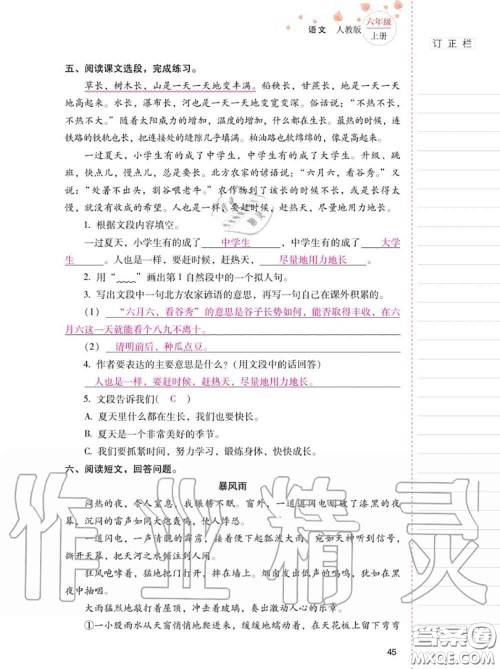 语文 人教版 六年级上册
订正栏
五、阅读课文选段，完成练习。
草长，树木长，山是一天一天地变丰满。稻秧长，甘蔗长，地是一天一天
地高起来。水长，瀑布长，河是一天一天地变宽变深。俗话说：“不热不长，
不热不大。”随着太阳威力的增加，温度的增加，什么都在生长。最热的时候，连
铁路的铁轨也长，把连接处的缝隙几乎填满。柏油路也软绵绵的，像是高起来。
一过夏天，小学生有的成了中学生，中学生有的成了大学生。升级、跳
班，快点儿，慢点儿，总是要长。北方农家的谚语说：“六月六，看谷秀。”又
说：“处暑不出头，割谷喂老牛。”农作物到了该长的时候不长，或是长得太
慢，就没有收成的希望。人也是一样，要赶时候，赶热天，尽量地用力地长。
1. 根据文段内容填空。
一过夏天，小学生有的成了 中学生 ，中学生有的成了 大学
生 。人也是一样，要赶时候，赶热天， 尽量地用力地长 。
2. 用“﹏﹏”画出第 1 自然段中的一个拟人句。
3. 写出文段中一句北方农家谚语的意思，再写一句自己在课外积累的。
（1） “六月六，看谷秀”的意思是谷子长势如何，能否取得丰收，在六
月六这一天就能看个八九不离十。
（2） 清明前后，种瓜点豆。
4. 作者要表达的主要意思是什么？（用文段中的话回答）
人也是一样，要赶时候，赶热天，尽量地用力地长。
5. 文段告诉我们（ C ）
A. 夏天里什么都在生长，我们也在生长。
B. 夏天是一个非常美好的季节。
C. 我们要抓紧时间，努力学习，锻炼身体，快快成长。
六、阅读短文，回答问题。
暴风雨
闷热的夜，令人窒息，我辗转不眠。窗外，一道道闪电划破了漆黑的夜
幕，沉闷的雷声如同大炮轰鸣，使人悸恐。
一道闪电，一声清脆的霹雳，接着便下起瓢泼大雨。宛如天神听到信号，
撕开天幕，把天河之水倾注到人间。
狂风咆哮着，猛地把门打开，摔在墙上。烟囱发出呜呜的声响，犹如在黑夜
中抽咽。
大雨猛烈地敲打着屋顶，冲击着玻璃，奏出激动人心的乐章。
①一小股雨水从天窗悄悄地爬进来，缓缓地蠕动着，在天花板上留下弯弯
45
作业精灵